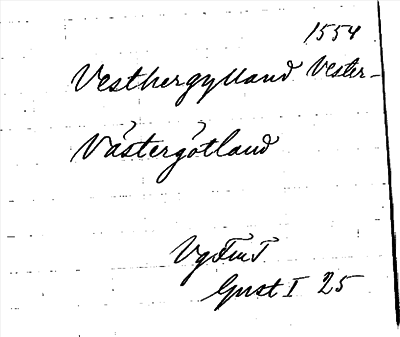 1554
Vesthergylland Vester-
Västergötland
Gust I 25